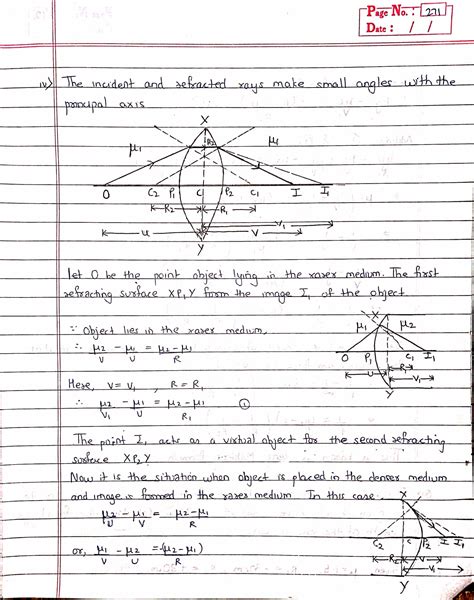 Page No. : 271
Date : / /
iv) The incident and refracted rays make small angles with the
principal axis
X
μ1 μ2 μ1
O C2 P1 C P2 C1 I I1
R2 R1
V1
u V
Y
let O be the point object lying in the rarer medium. The first
refracting surface XP1Y form the image I1 of the object
∵ Object lies in the rarer medium,
∴ μ2/V - μ1/U = μ2-μ1/R
X
μ1 μ2
O P1 C1 I1
R1
u V1
Y
Here, V = V1 , R = R1
∴ μ2/V1 - μ1/U = μ2-μ1/R1 ①
The point I1 acts as a virtual object for the second refracting
surface XP2Y
Now it is the situation when object is placed in the denser medium
and image is formed in the rarer medium In this case
μ2/U - μ1/V = μ2-μ1/R
or, μ1/V - μ2/U = -(μ2-μ1)/R
X
C2 C P2 I I1
R2 V
V1
Y